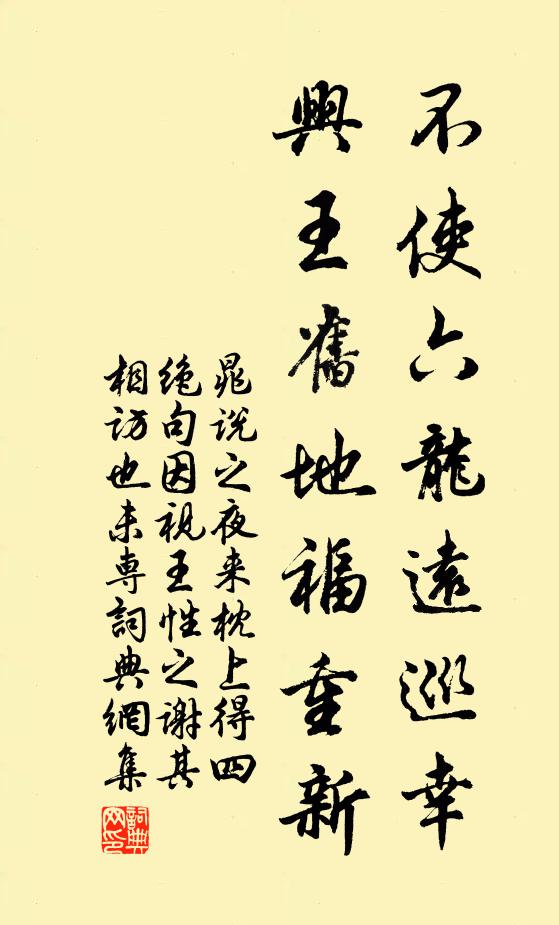 不使六龍遠巡幸
興王舊地福重新
晁說之夜来枕上得四
絶句因視王性之謝其
相訪也未專詞典網集
詞典
网印